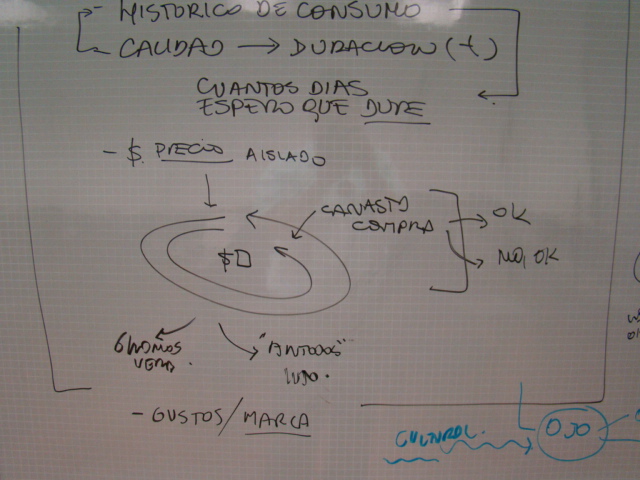 - HISTORICO DE CONSUMO
CALIDAD → DURACION (+)
CUANTOS DIAS
ESPERO QUE DURE
- $ PRECIO AISLADO
CANASTO
COMPRA
OK
NO, OK
$
GNOMOS
VERA.
"ANTOJOS"
LUJO.
- GUSTOS/MARCA
CULTURAL.
OJO